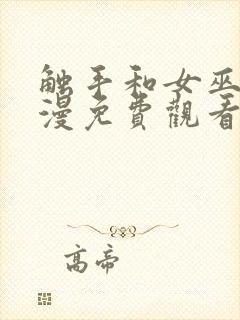 触手和女巫
漫免費觀看
高帝